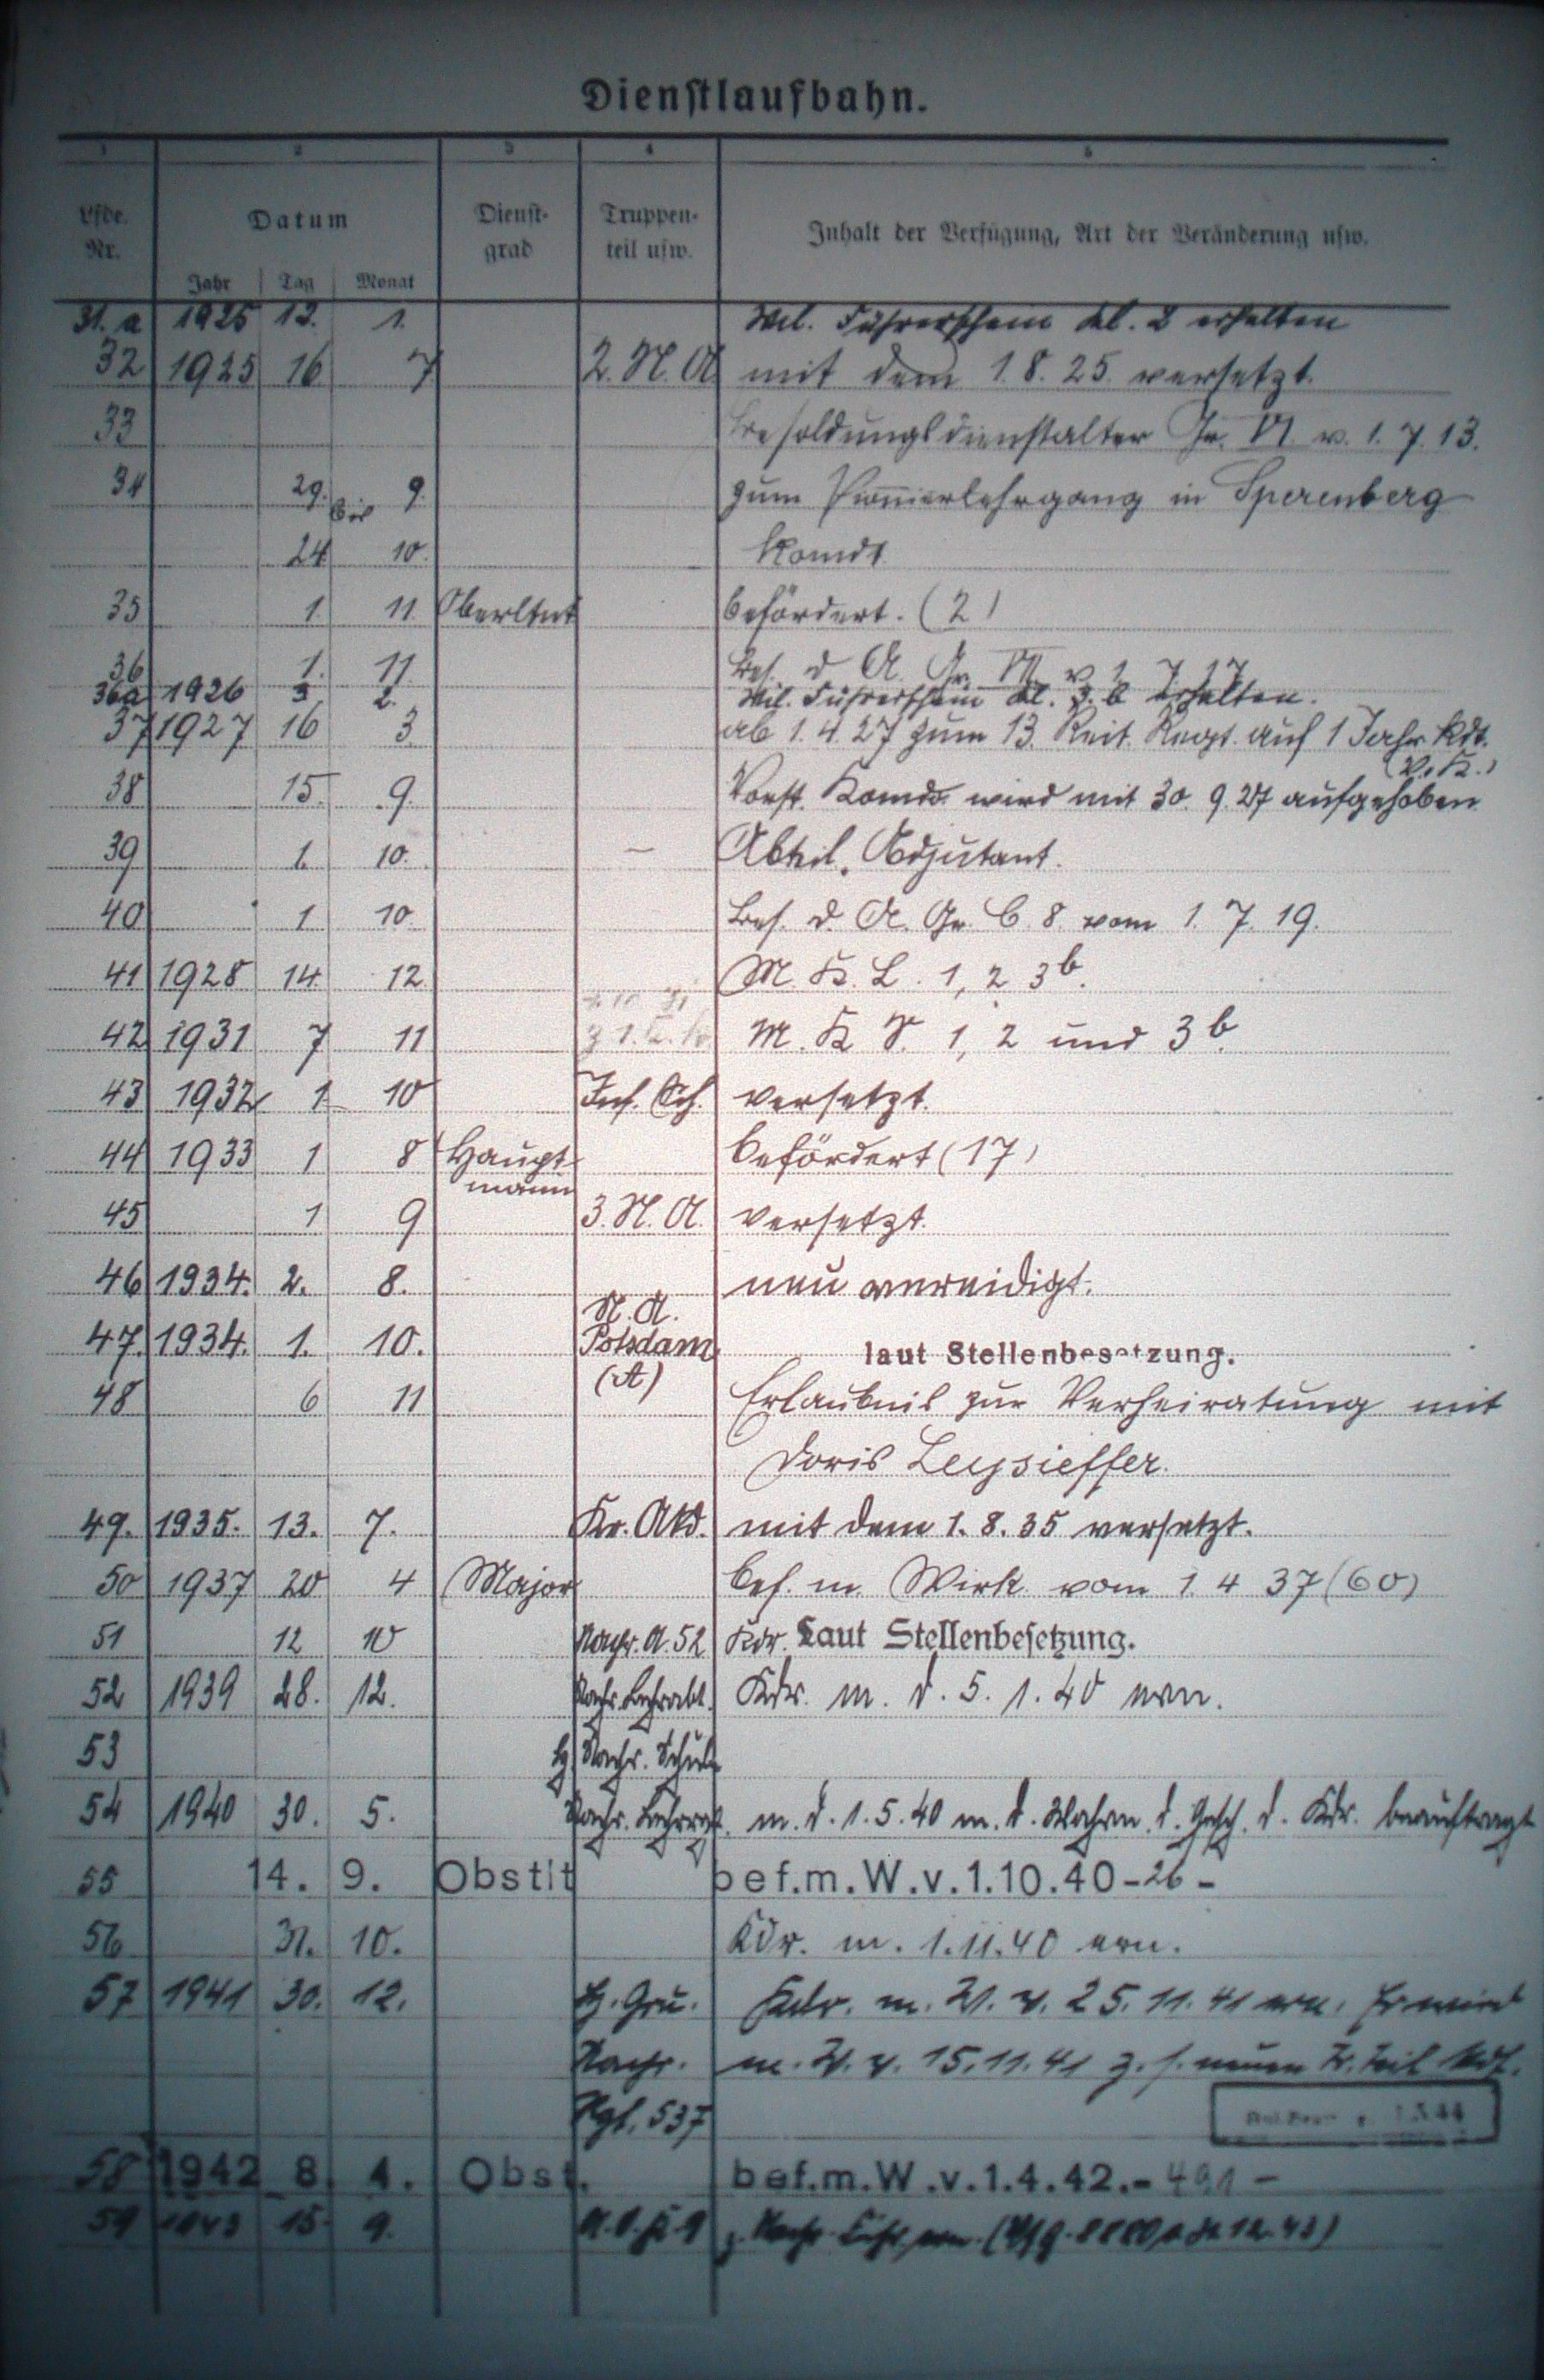 Dienstlaufbahn.
1 2 3 4 5
Lfde. Nr. Datum Dienst-grad Truppen-teil usw. Inhalt der Verfügung, Art der Veränderung usw.
Jahr Tag Monat
31.a 1925 12. 1. Mil. Führerschein Kl. 2 erhalten
32 1925 16 7 2. N. A. mit dem 1. 8. 25. versetzt.
33 Besoldungsdienstalter Gr. VI. v. 1. 7. 13.
34 29. bis 9. zum Pionierlehrgang in Sperenberg
24. 10. komdt.
35 1. 11. Oberltnt befördert. (2)
36 1. 11. Bes. d. A. Gr. VII v. 1. 7. 17
36a 1926 3 2. Mil. Führerschein Kl. 3. b erhalten.
37 1927 16 3. ab 1. 4. 27 zum 13. Reit. Regt. auf 1 Jahr kdt.
(V. K.)
38 15. 9. Vorst. Komdo. wird mit 30. 9. 27 aufgehoben
39 1. 10. – Abteil. Adjutant.
40 1. 10. Bes. d. A. Gr. C. 8. vom 1. 7. 19.
41 1928 14. 12. M. K. L. 1, 2, 3b.
42 1931 7 11 M. K. S. 1, 2 und 3b.
43 1932 1 10 Inf. Sch. versetzt.
44 1933 1 8 Haupt-mann befördert (17)
45 1 9 3. N. A. versetzt.
46 1934. 2. 8. neu vereidigt.
47. 1934. 1. 10. N. A. Potsdam (A) laut Stellenbesetzung.
48 6 11 Erlaubnis zur Verheiratung mit
Doris Leysieffer.
49. 1935. 13. 7. Kr. Akd. mit dem 1. 8. 35 versetzt.
50 1937 20 4 Major bef. m. Wirk. vom 1. 4. 37 (60)
51 12 10 Nachr. A. 52 Kdr. Laut Stellenbesetzung.
52 1939 28. 12. Nachr. Lehrabt. Kdr. m. d. 5. 1. 40 ern.
53 H. Nachr. Schule
54 1940 30. 5. Nachr. Lehrregt. m. d. 1. 5. 40 m. d. Wahrn. d. Gesch. d. Kdr. beauftragt
55 14. 9. Obstlt bef.m.W.v.1.10.40-26-
56 31. 10. Kdr. m. 1. 11. 40 ern.
57 1941 30. 12. H. Gru. Kdr. m. W. v. 25. 11. 41 ern. Er wird
Nachr. m. W. v. 15. 11. 41 z. s. neuen Tr. Teil kdt.
Rgt. 537
58 1942 8. 4. Obst. bef.m.W.v.1.4.42.-491-
59 1943 15. 9.